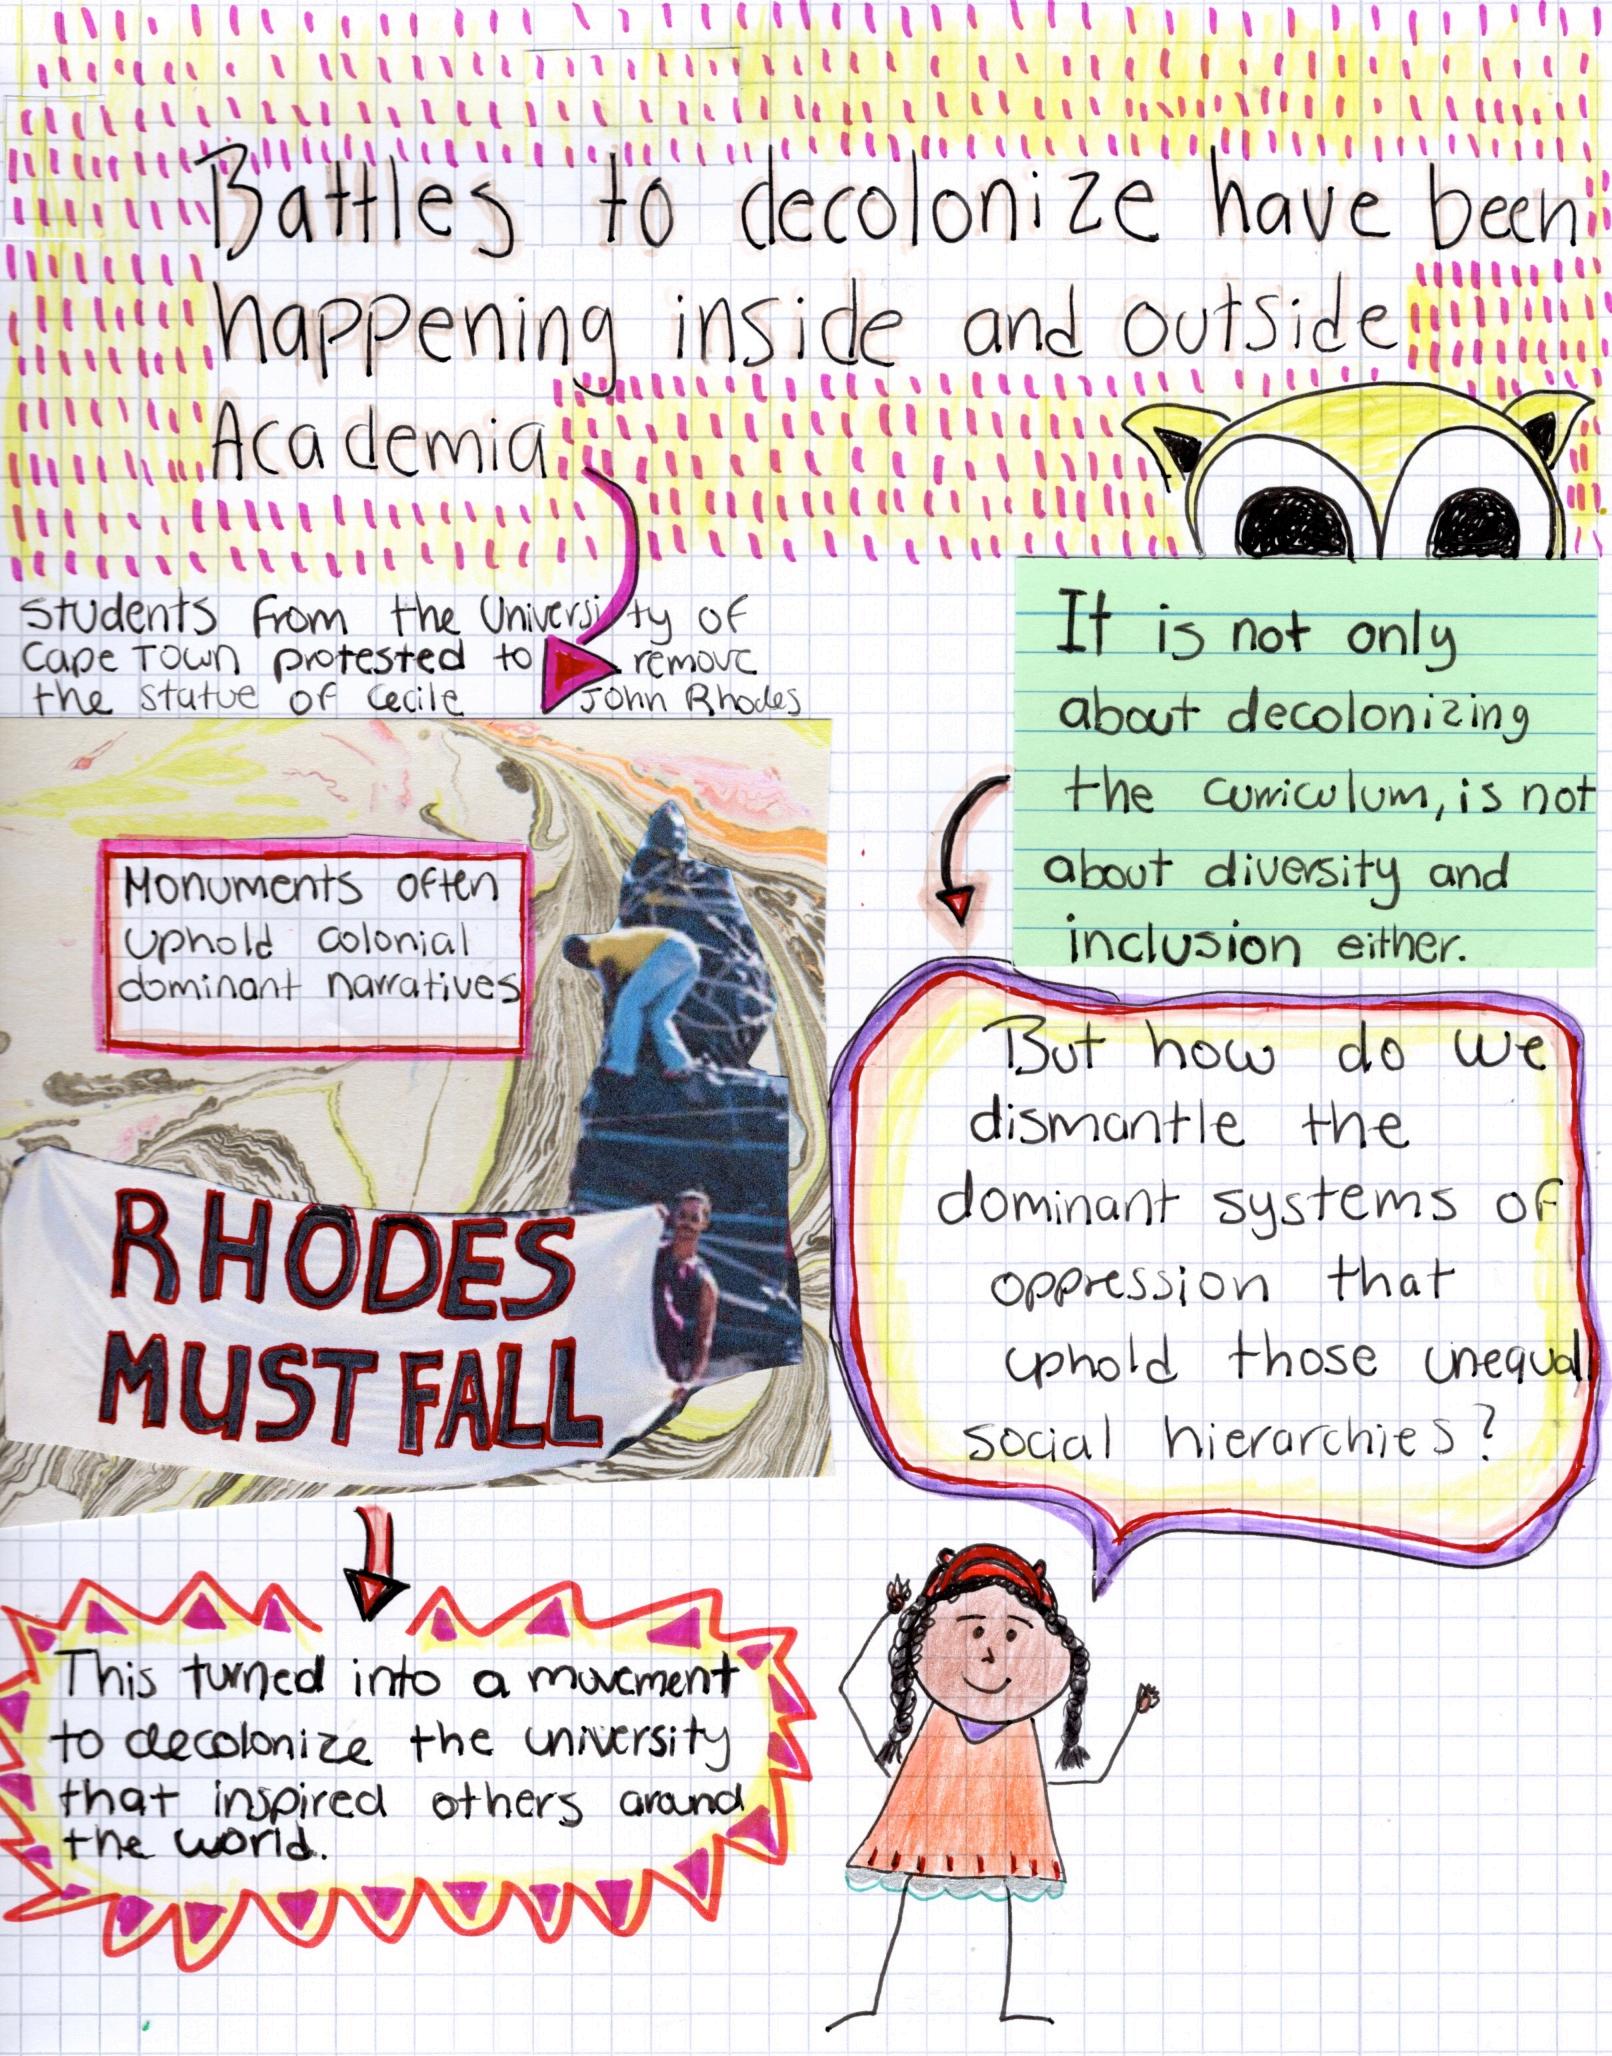 Battles to decolonize have been
happening inside and outside
Academia
Students from the University of
Cape Town protested to remove
the statue of Cecile John Rhodes
Monuments often
uphold colonial
dominant narratives
RHODES
MUST FALL
This turned into a movement
to decolonize the university
that inspired others around
the world.
It is not only
about decolonizing
the curriculum, is not
about diversity and
inclusion either.
But how do we
dismantle the
dominant systems of
oppression that
uphold those unequal
social hierarchies?